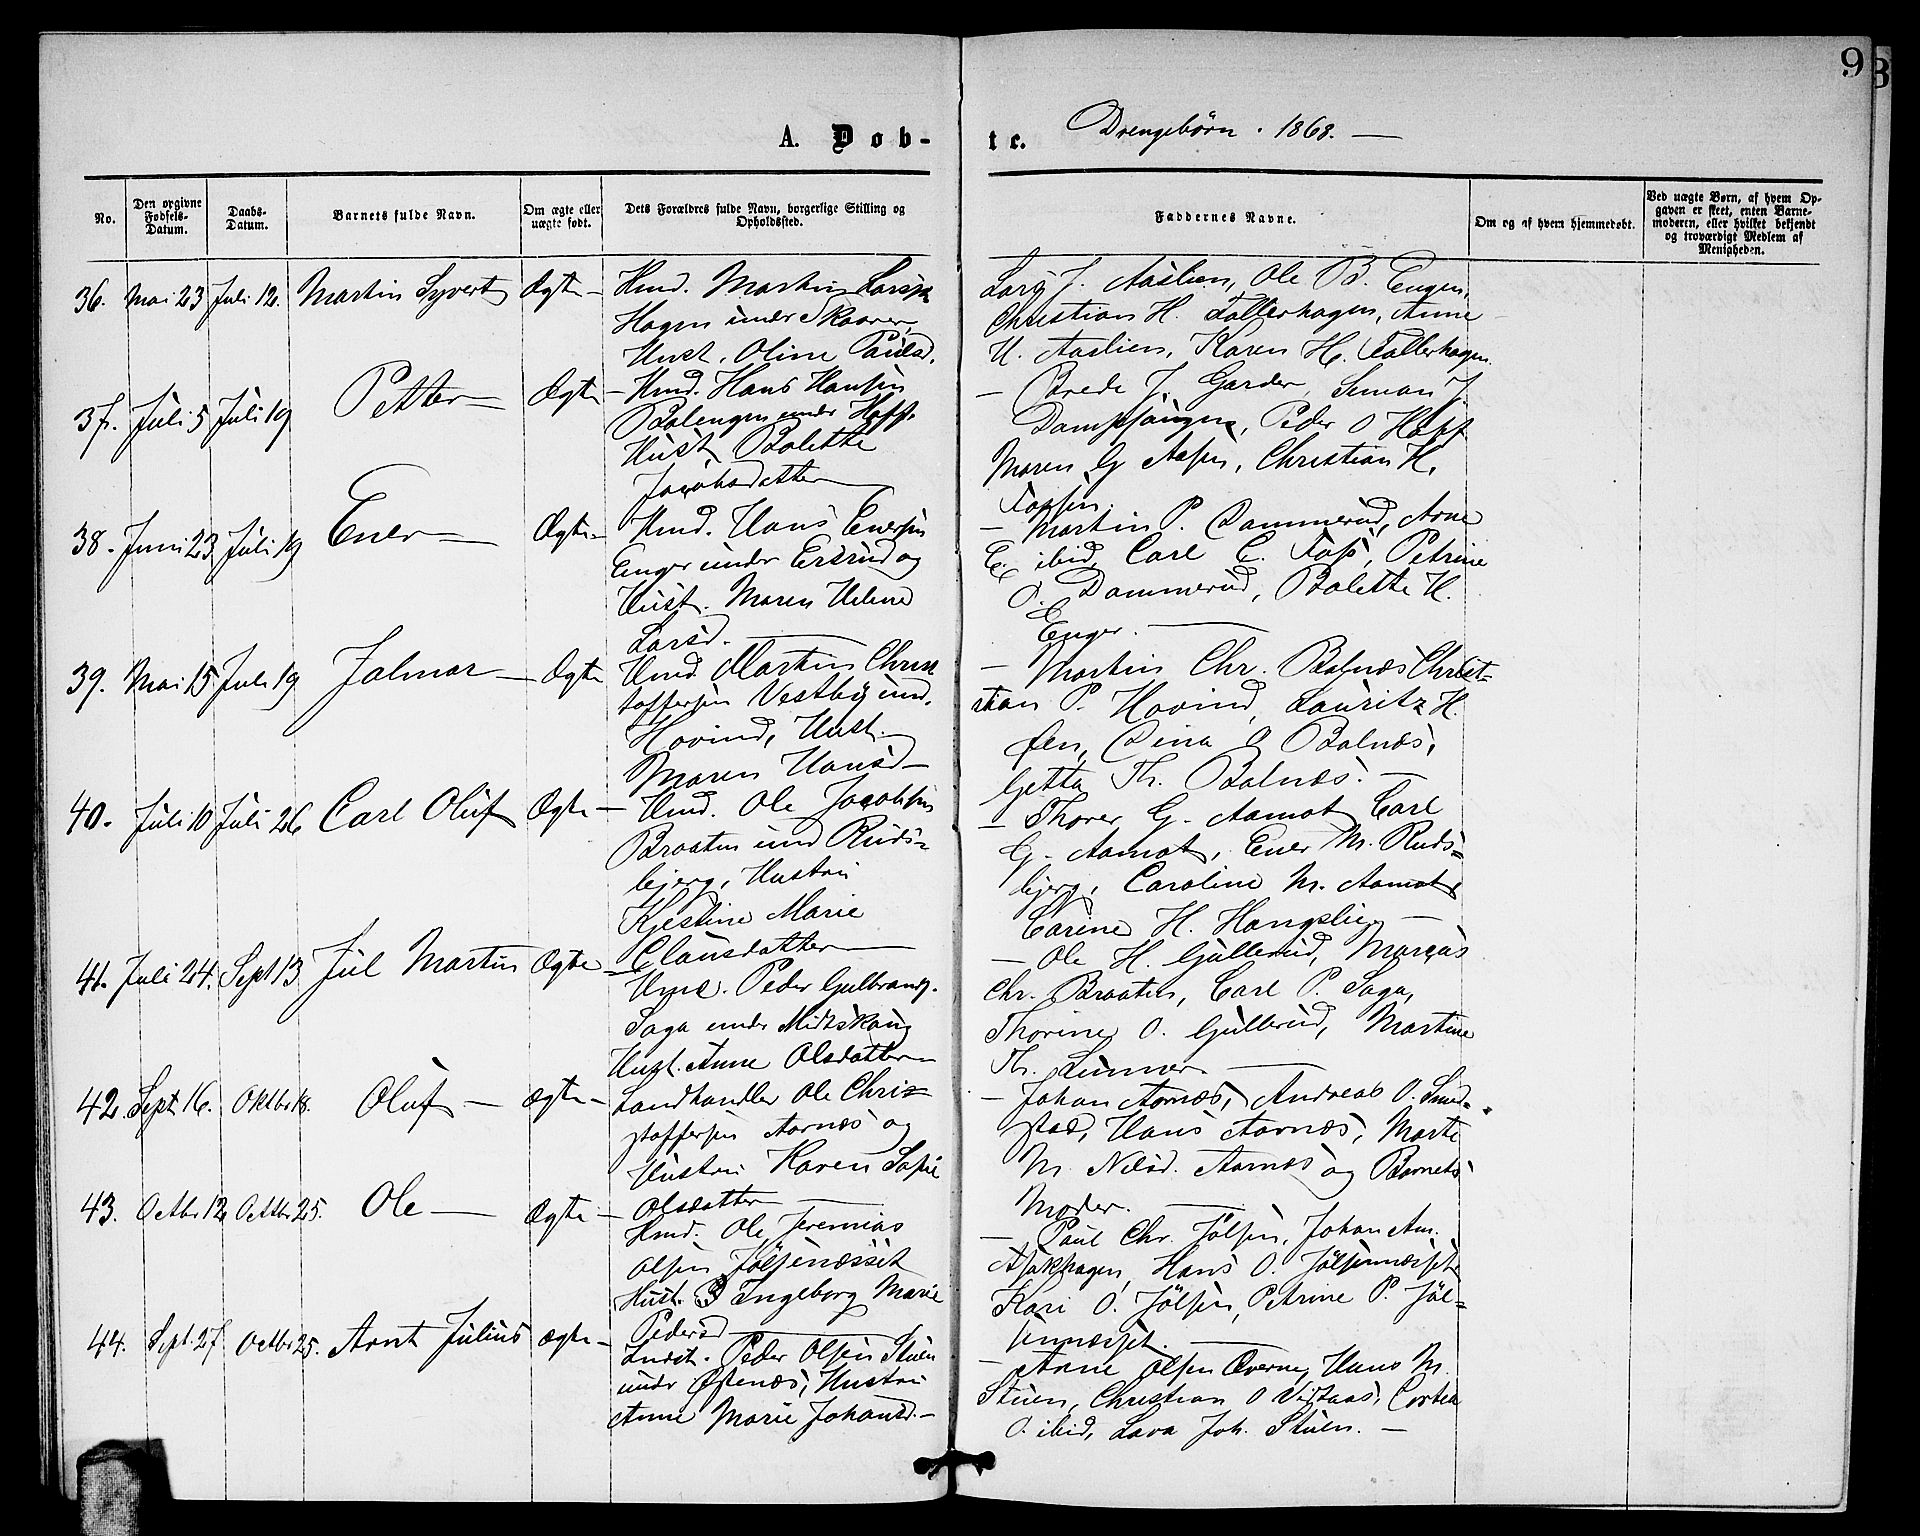 9
A. Døb-
te.
Drengebørn. 1868. —
No.
Den opgivne Fødsels-Datum.
Daabs-Datum.
Barnets fulde Navn.
Om ægte eller uægte født.
Dets Forældres fulde Navn, borgerlige Stilling og Opholdssted.
Faddernes Navne.
Om og af hvem hjemmedøbt.
Ved uægte Børn, af hvem Opgaven er skeet, enten Barnemoderen, eller hvilket bekjendt og troværdigt Medlem af Menigheden.
36. Mai 23 Juli 12. Martin Syvert Ægte –
Hmd. Martin Larsen
Hagen under Skaarer,
Hust. Oline Paulsd.
Lars J. Aaslien, Ole B. Engen,
Christian H. Tollerhagen, Anne
H. Aaslien, Karen H. Tollerhagen.
37. Juli 5 Juli 19 Petter — Ægte
– Hmd. Hans Hansen
Bolengen under Hoff.
Hust. Bolette
Jacobsdatter —
— Brede J. Garder, Simon J.
Dampsaugen, Peder O Hoff
Maren G Aasen, Christian H.
38. Juni 23 Juli 19 Ener — Ægte –
Hmd. Hans Enersen
Enger under Ersrud og
Hust. Maren Helene
Larsd. —
— Martin P. Dammerud, Arne
E. ibid, Carl C. Foss, Petrine
O. Dammerud, Bolette H.
Enger. —
39. Mai 15 Juli 19 Jalmar — Ægte
Hmd. Martin Chris
toffersen Vestby und.
Hovind, Hust.
Maren Hansd —
— Martin Chr. Bolnæs Christ-
tian P. Hovind, Lauritz H.
Dina O Bolnæs,
Getta Th. Bolnæs. —
40. Juli 10 Juli 26 Carl Oluf Ægte
— Hmd. Ole Jacobsen
Braaten und Ruds-
bjerg, Hustru
Kjestine Marie
Clausdatter —
— Thorer G. Aamot, Carl
G. Aamot, Ener M. Ruds-
bjerg, Caroline M. Aamot
Carine H. Hangslien —
41. Juli 24. Sept 13 Jul Martin Ægte
— Hmd. Peder Gulbrands.
Saga under Midtskoug
Hust. Anne Olsdatter —
— Ole H. Gullerud, Marcus
Chr. Braaten, Carl P. Saga,
Thorine O. Gullerud, Martine
Th. Lunner —
42. Sept 16. Oktbr 18. Oluf — Ægte –
Landhandler Ole Chris-
stoffersen Aarnæs og
Hustru Karen Sofie
Olsdatter —
— Johan Aarnæs, Andreas O. Smed-
stad, Hans Aarnæs, Marte
M. Nilsd. Aarnæs og Barnets
Moder. —
43. Octbr 12 Octbr 25. Ole — Ægte —
Hmd. Ole Jeremias
Olsen Jølsenæsset
Hust. Ingeborg Marie
Pedersd —
— Paul Chr. Jølsen, Johan Am.
Hans O. Jølsennæsset
Kari O. Jølsen, Petrine P. Jøl-
sennæsset. —
44. Sept. 27 Octbr 25. Arnt Julius Ægte –
Indst. Peder Olsen Stuen
under Østenæs, Hustru
Anne Marie Johansd. —
— Arne Olsen Overn, Hans M.
Stuen, Christian O Vestaas,
O. ibid, Lava Joh. Stuen. —